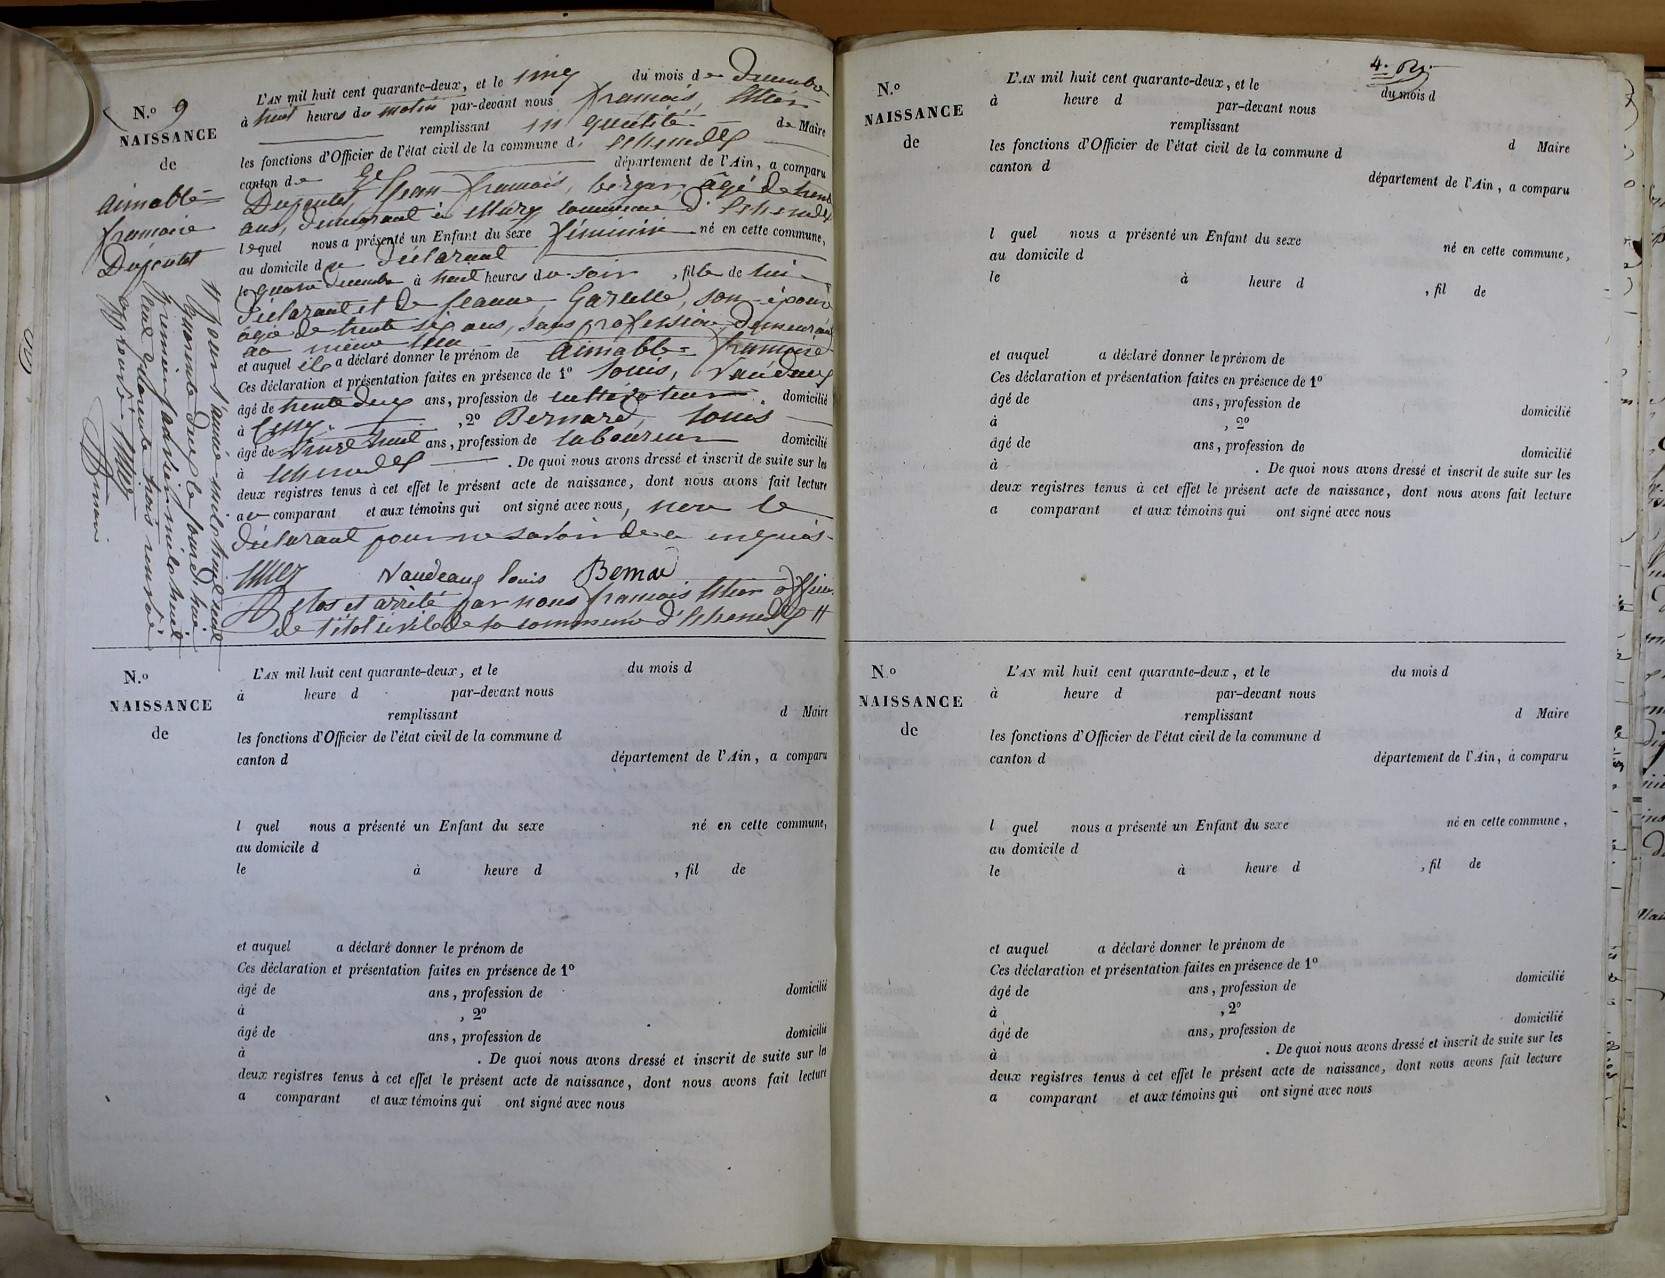 N.º 9
NAISSANCE
de
Aimable=
françoise
Dupontet
L'AN mil huit cent quarante-deux, et le cinq du mois de Décembre
à huit heures du matin par-devant nous françois,
remplissant en qualité de Maire
les fonctions d'Officier de l'état civil de la commune d'
canton de département de l'Ain, a comparu
Jean françois, berger âgé de trente
ans, demeurant à commune d'
lequel nous a présenté un Enfant du sexe féminin né en cette commune,
au domicile du déclarant
le quatre Décembre à huit heures du soir, fille de lui
déclarant et de Jeanne son épouse
âgée de trente six ans, sans profession, demeurant
au même lieu
et auquel il a déclaré donner le prénom de Aimable= françoise
Ces déclaration et présentation faites en présence de 1º Louis,
âgé de trente deux ans, profession de cultivateur domicilié
à , 2º Bernard, Louis
âgé de huit ans, profession de laboureur domicilié
à . De quoi nous avons dressé et inscrit de suite sur les
deux registres tenus à cet effet le présent acte de naissance, dont nous avons fait lecture
au comparant et aux témoins qui ont signé avec nous, non le
déclarant pour ne savoir de ce enquis.
Vaudeaux louis Bernard
clos et arrêté par nous françois officier
de l'état civil de la commune d'
N.º
NAISSANCE
de
L'AN mil huit cent quarante-deux, et le du mois d
à heure d par-devant nous
remplissant d Maire
les fonctions d'Officier de l'état civil de la commune d
canton d département de l'Ain, a comparu
l quel nous a présenté un Enfant du sexe né en cette commune,
au domicile d
le à heure d , fil de
et auquel a déclaré donner le prénom de
Ces déclaration et présentation faites en présence de 1º
âgé de ans, profession de domicilié
à , 2º
âgé de ans, profession de domicilié
à . De quoi nous avons dressé et inscrit de suite sur les
deux registres tenus à cet effet le présent acte de naissance, dont nous avons fait lecture
a comparant et aux témoins qui ont signé avec nous
4.
N.º
NAISSANCE
de
L'AN mil huit cent quarante-deux, et le du mois d
à heure d par-devant nous
remplissant d Maire
les fonctions d'Officier de l'état civil de la commune d
canton d département de l'Ain, a comparu
l quel nous a présenté un Enfant du sexe né en cette commune,
au domicile d
le à heure d , fil de
et auquel a déclaré donner le prénom de
Ces déclaration et présentation faites en présence de 1º
âgé de ans, profession de domicilié
à , 2º
âgé de ans, profession de domicilié
à . De quoi nous avons dressé et inscrit de suite sur les
deux registres tenus à cet effet le présent acte de naissance, dont nous avons fait lecture
a comparant et aux témoins qui ont signé avec nous
N.º
NAISSANCE
de
L'AN mil huit cent quarante-deux, et le du mois d
à heure d par-devant nous
remplissant d Maire
les fonctions d'Officier de l'état civil de la commune d
canton d département de l'Ain, a comparu
l quel nous a présenté un Enfant du sexe né en cette commune,
au domicile d
le à heure d , fil de
et auquel a déclaré donner le prénom de
Ces déclaration et présentation faites en présence de 1º
âgé de ans, profession de domicilié
à , 2º
âgé de ans, profession de domicilié
à . De quoi nous avons dressé et inscrit de suite sur les
deux registres tenus à cet effet le présent acte de naissance, dont nous avons fait lecture
a comparant et aux témoins qui ont signé avec nous